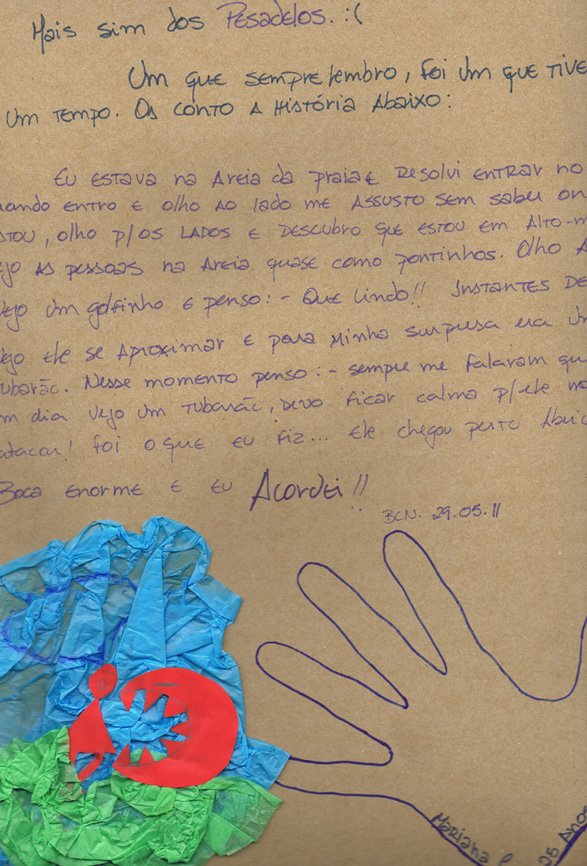 Mais sim dos Pesadelos. :(
Um que sempre lembro, foi um que tive
um tempo. Os conto a História Abaixo:
Eu estava na Areia da praia e Resolvi entrar no
uando entro e olho ao lado me Assusto sem saber on
stou, olho p/os Lados e Descubro que estou em Alto-m
ejo as pessoas na Areia quase como pontinhos. Olho a
vejo um golfinho e penso: - Que lindo!! Instantes De
ejo ele se Aproximar e para minha surpresa era um
ubarão. Nesse momento penso: - sempre me falaram que
m dia vejo um tubarão, devo ficar calma p/ele nã
atacar! foi o que eu fiz... Ele chegou perto Abriu
Boca enorme e eu Acordei!!
BCN. 29.05.11
Mariana
25 Anos